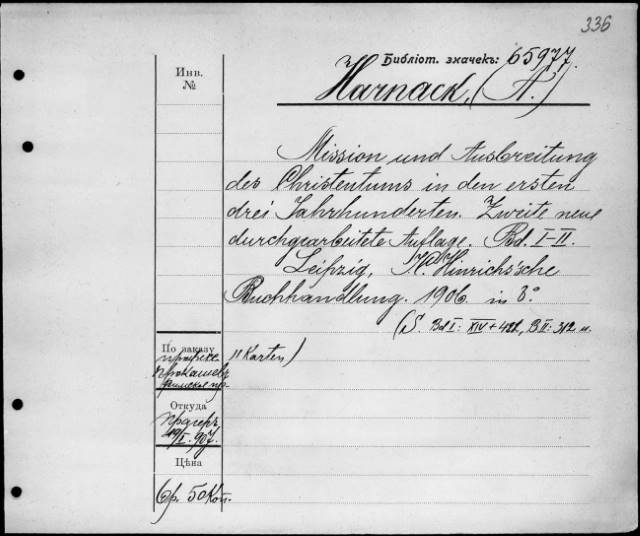 336
Библіот. значекъ: 65977.
Инв.
№
Harnack, (A.)
Mission und Ausbreitung
des Christentums in den ersten
drei Jahrhunderten. Zweite neue
durchgearbeitete Auflage. Bd. I-II.
Leipzig, Hinrichs'sche
Buchhandlung. 1906 in 8°
(S. Bd I: XIV + 421, B II: 312 u.
11 Karten)
По заказу
Откуда
19/I. 907.
Цѣна
6 р. 50 коп.